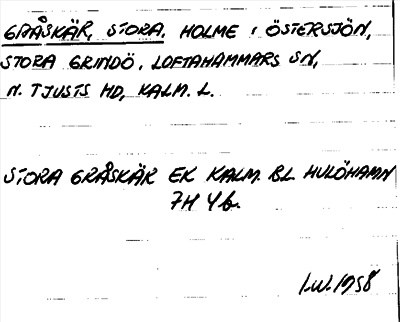 GRÅSKÄR, STORA, HOLME I ÖSTERSJÖN,
STORA GRINDÖ, LOFTAHAMMARS SN,
N. TJUSTS HD, KALM. L.
STORA GRÅSKÄR EK KALM. BL. HULÖHAMN
7H 4b.
I.W. 1958